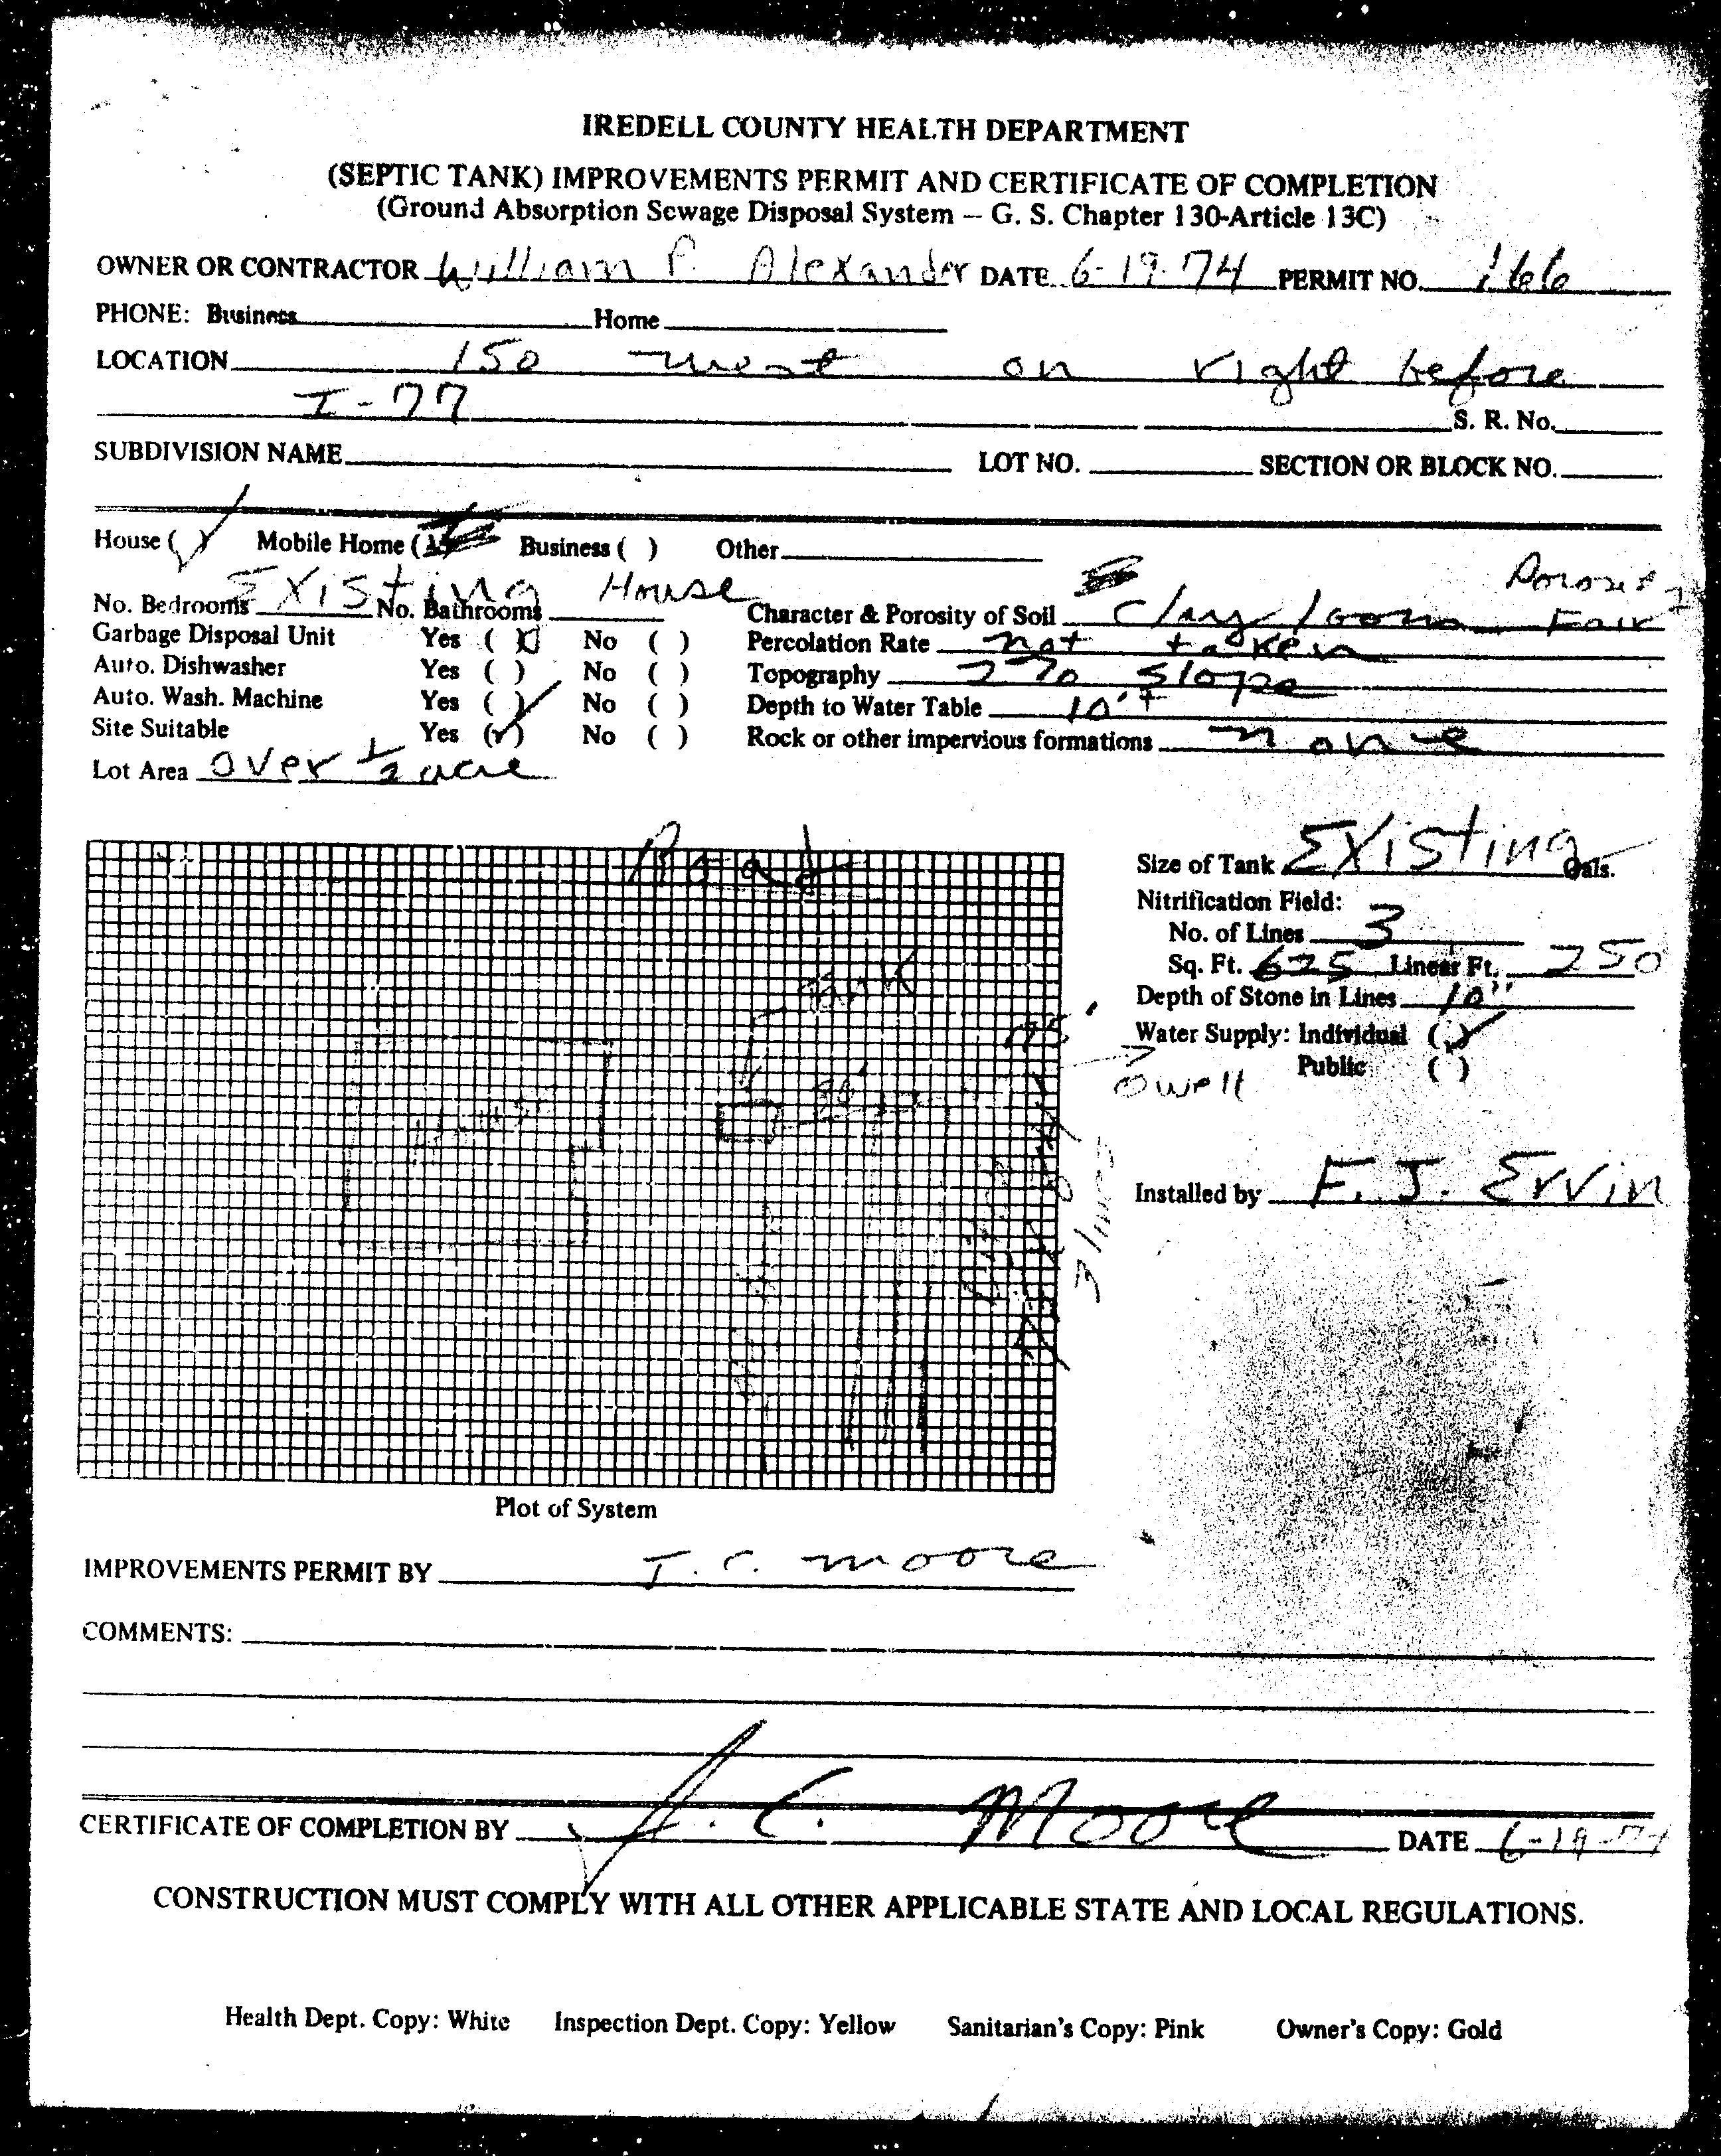 IREDELL COUNTY HEALTH DEPARTMENT
(SEPTIC TANK) IMPROVEMENTS PERMIT AND CERTIFICATE OF COMPLETION
(Ground Absorption Sewage Disposal System – G. S. Chapter 130-Article 13C)
OWNER OR CONTRACTOR William P. Alexander DATE 6-19-74 PERMIT NO. 166
PHONE: Business Home
LOCATION 150 west on right before
I-77 S. R. No.
SUBDIVISION NAME LOT NO. SECTION OR BLOCK NO.
House (✓) Mobile Home ( ) Business ( ) Other
Existing House
No. Bedrooms No. Bathrooms
Garbage Disposal Unit Yes (X) No ( )
Auto. Dishwasher Yes ( ) No ( )
Auto. Wash. Machine Yes (✓) No ( )
Site Suitable Yes (✓) No ( )
Lot Area Over 1/2 acre
Character & Porosity of Soil Clay loam Fair
Percolation Rate not taken
Topography 2% slope
Depth to Water Table 10'+
Rock or other impervious formations none
Road
Tank
75'
well
3 lines
Size of Tank Existing Gals.
Nitrification Field:
No. of Lines 3
Sq. Ft. 625 Linear Ft. 250
Depth of Stone in Lines 10"
Water Supply: Individual (✓)
Public ( )
Installed by F. J. Ervin
Plot of System
IMPROVEMENTS PERMIT BY J. C. Moore
COMMENTS:
CERTIFICATE OF COMPLETION BY J. C. Moore DATE 6-19-74
CONSTRUCTION MUST COMPLY WITH ALL OTHER APPLICABLE STATE AND LOCAL REGULATIONS.
Health Dept. Copy: White Inspection Dept. Copy: Yellow Sanitarian's Copy: Pink Owner's Copy: Gold